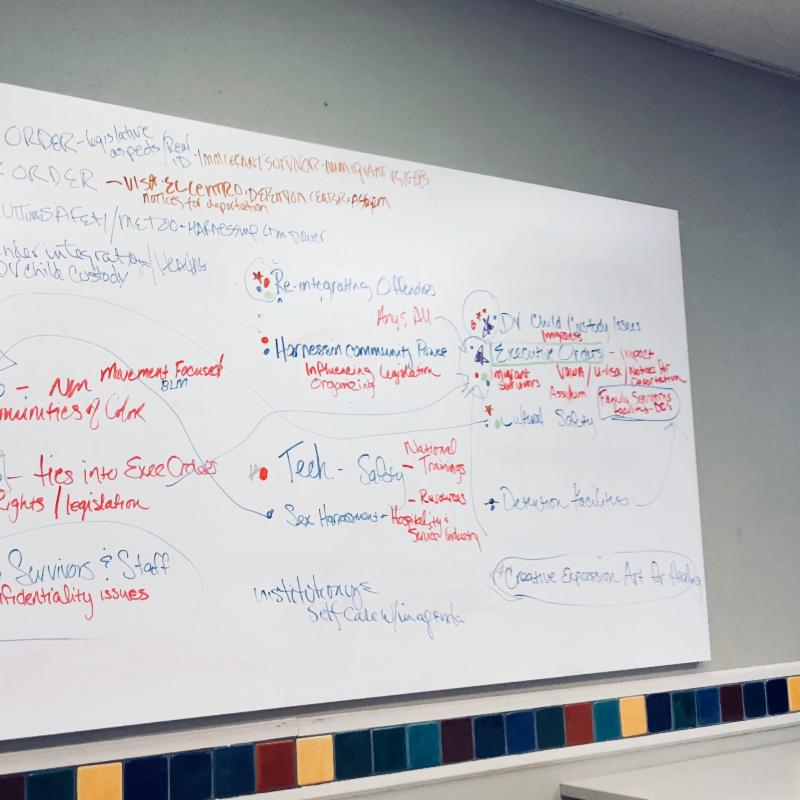 ORDER - legislative
aspects / Real
ID • IMMIGRANT SURVIVOR
ORDER - VISA • EL CENTRO, DETENTION CENTER, ASYLUM
notices for deportation
SAFETY / METOO - HARNESSING COM POWER
integration /
DV Child Custody
Re-integrating Offenders
Any & All
Harnessin Community Power
Influencing Legislation
Organizing
- NM Movement Focused
BLM
Communities of Color
- ties into Exec Orders
Rights / legislation
Survivors & Staff
Confidentiality issues
Tech. - Safety
National
- Trainings
- Resources
Sex Harassment - Hospitality &
Service Industry
Self Care w/in agenda
DV Child Custody Issues
Immigrants
Executive Orders - Impact
Migrant
Survivors
VAWA / U-Visa / Notices for
Deportation
Asylum
Family Separations
Facilities - DC's
Cultural Safety
Detention Facilities
Creative Expression Art for Healing